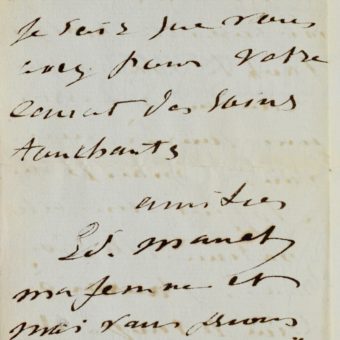 Je sais que vous
avez pour votre
des soins
touchants
amitiés
Ed. Manet
ma femme et
moi vous prions